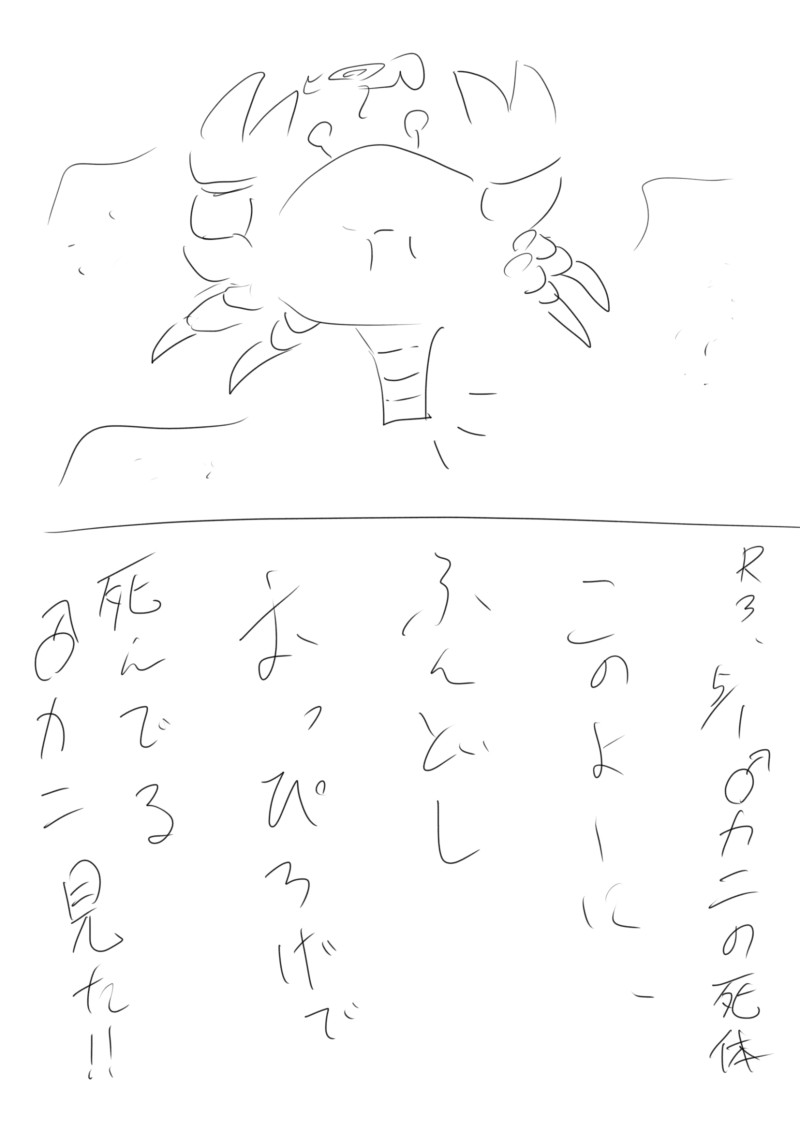 R3、5/1 ♂カニの死体
このよーに、
ふんどし
おっぴろげで
死んでる
♂カニ見た!!